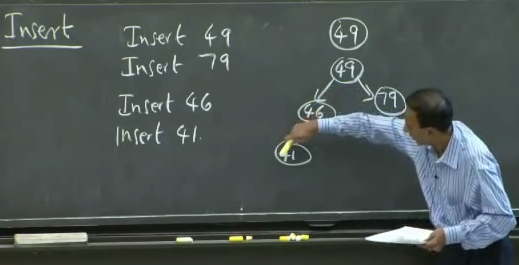 Insert
Insert 49
Insert 79
Insert 46
Insert 41.
49
49
46
79
41